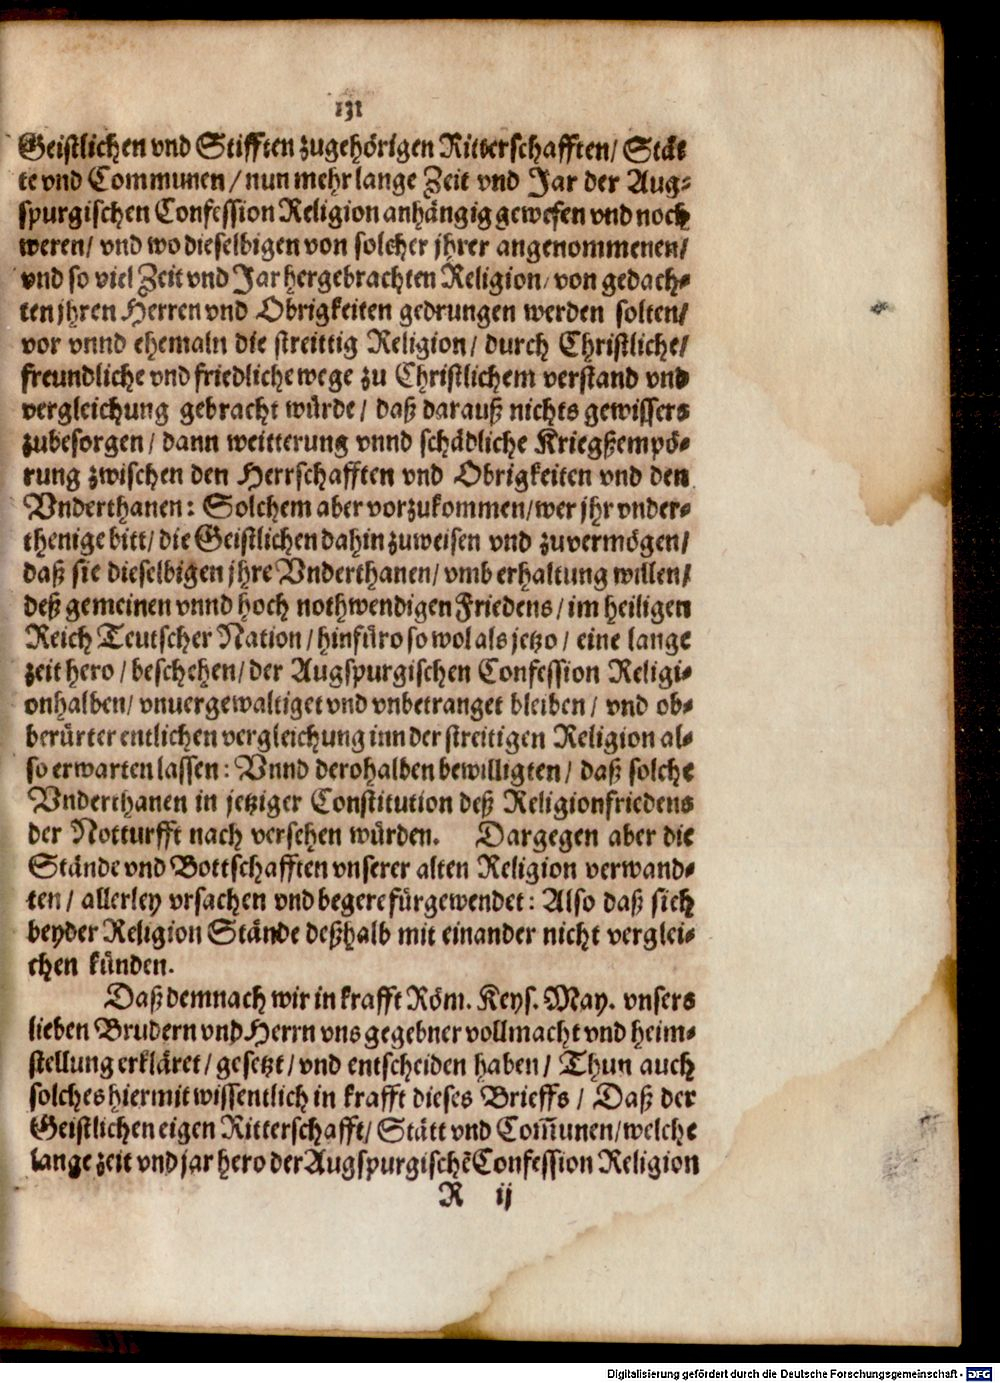 131
Geistlichen vnd Stifften zugehörigen Ritterschafften/ Stät
te vnd Communen/ nun mehr lange Zeit vnd Jar der Aug-
spurgischen Confession Religion anhängig gewesen vnd noch
weren/ vnd wo dieselbigen von solcher jhrer angenommenen/
vnd so viel Zeit vnd Jar hergebrachten Religion/ von gedach-
ten jhren Herren vnd Obrigkeiten gedrungen werden solten/
vor vnnd ehemaln die streittig Religion/ durch Christliche/
freundliche vnd friedliche wege zu Christlichem verstand vnd
vergleichung gebracht würde/ daß darauß nichts gewissers
zubesorgen/ dann weitterung vnnd schädliche Kriegßempö-
rung zwischen den Herrschafften vnd Obrigkeiten vnd den
Vnderthanen: Solchem aber vorzukommen/wer jhr vnder-
thenige bitt/ die Geistlichen dahin zuweisen vnd zuvermögen/
daß sie dieselbigen jhre Vnderthanen/ vmb erhaltung willen/
deß gemeinen vnnd hoch nothwendigen Friedens/ im heiligen
Reich Teutscher Nation/ hinfüro so wol als jetzo/ eine lange
zeit hero/ beschehen/ der Augspurgischen Confession Religi-
onhalben/ vnuergewaltiget vnd vnbetranget bleiben/ vnd ob-
berürter entlichen vergleichung inn der streitigen Religion al-
so erwarten lassen: Vnnd derohalben bewilligten/ daß solche
Vnderthanen in jetziger Constitution deß Religionfriedens
der Notturfft nach versehen würden. Dargegen aber die
Stände vnd Bottschafften vnserer alten Religion verwand-
ten/ allerley vrsachen vnd begere fürgewendet: Also daß sich
beyder Religion Stände deßhalb mit einander nicht verglei-
chen künden.
Daß demnach wir in krafft Röm. Keys. May. vnsers
lieben Brudern vnd Herrn vns gegebner vollmacht vnd heim-
stellung erkläret/ gesetzt/ vnd entscheiden haben/ Thun auch
solches hiermit wissentlich in krafft dieses Brieffs/ Daß der
Geistlichen eigen Ritterschafft/ Stätt vnd Com̃unen/welche
lange zeit vnd jar hero der Augspurgischẽ Confession Religion
R ij
Digitalisierung gefördert durch die Deutsche Forschungsgemeinschaft - DFG